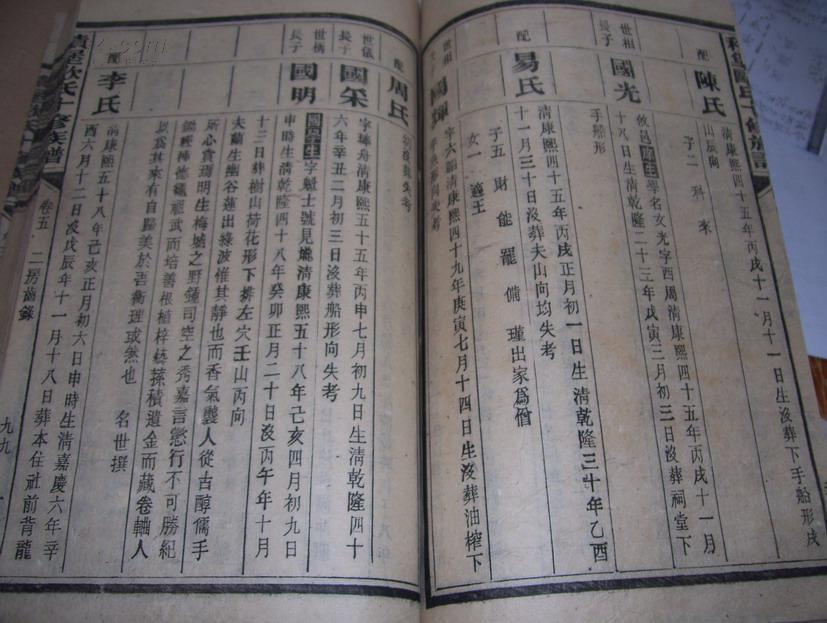 配
陳氏
清康熙四十五年丙戌十一月十一日生沒葬下手船形戌
山辰向
子二 科 來
世相
長子
國光
攸邑庠生學名文光字西周清康熙四十五年丙戌十一月
十八日生清乾隆二十三年戊寅三月初三日沒葬祠堂下
手船形
配
易氏
清康熙四十五年丙戌正月初一日生清乾隆三十年乙酉
十一月三十日沒葬夫山向均失考
子五 財 能 羅 備 瑾出家爲僧
女一 適王
世相
國輝
字六韶清康熙四十九年庚寅七月十四日生沒葬油榨下
形向失考
配
周氏
失考
世儀
長子
國采
字琫舟清康熙五十五年丙申七月初九日生清乾隆四十
六年辛丑二月初三日沒葬船形向失考
世儁
長子
國明
國學生字魁士號見蟾清康熙五十八年己亥四月初九日
申時生清乾隆四十八年癸卯正月二十日沒丙午年十月
十三日葬樹山荷花形下排左穴壬山丙向
夫蘭生幽谷蓮出綠波惟其靜也而香氣襲人從古醇儒手
所心貪焉明生梅城之野鍾司空之秀嘉言懿行不可勝紀
祖武而培善根植梓藝蓀積遺金而藏卷軸人
以爲其來有自歸美於吾衡理或然也 名世撰
配
李氏
清康熙五十八年己亥正月初六日申時生清嘉慶六年辛
酉六月十二日沒戊辰年十一月十八日葬本住社前背龍
卷五 二房齒錄
九九
歐氏十修族譜